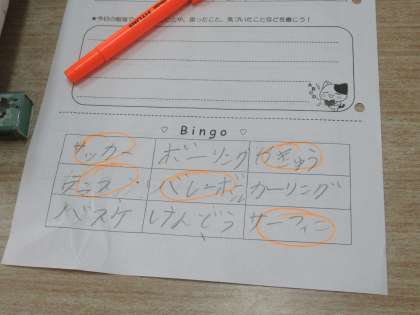 ★今日の勉強で
思ったこと、気づいたことなどを書こう!
♡ Bingo ♡
サッカー ボーリング やきゅう
テニス バレーボール カーリング
バスケ けんどう サーフィン